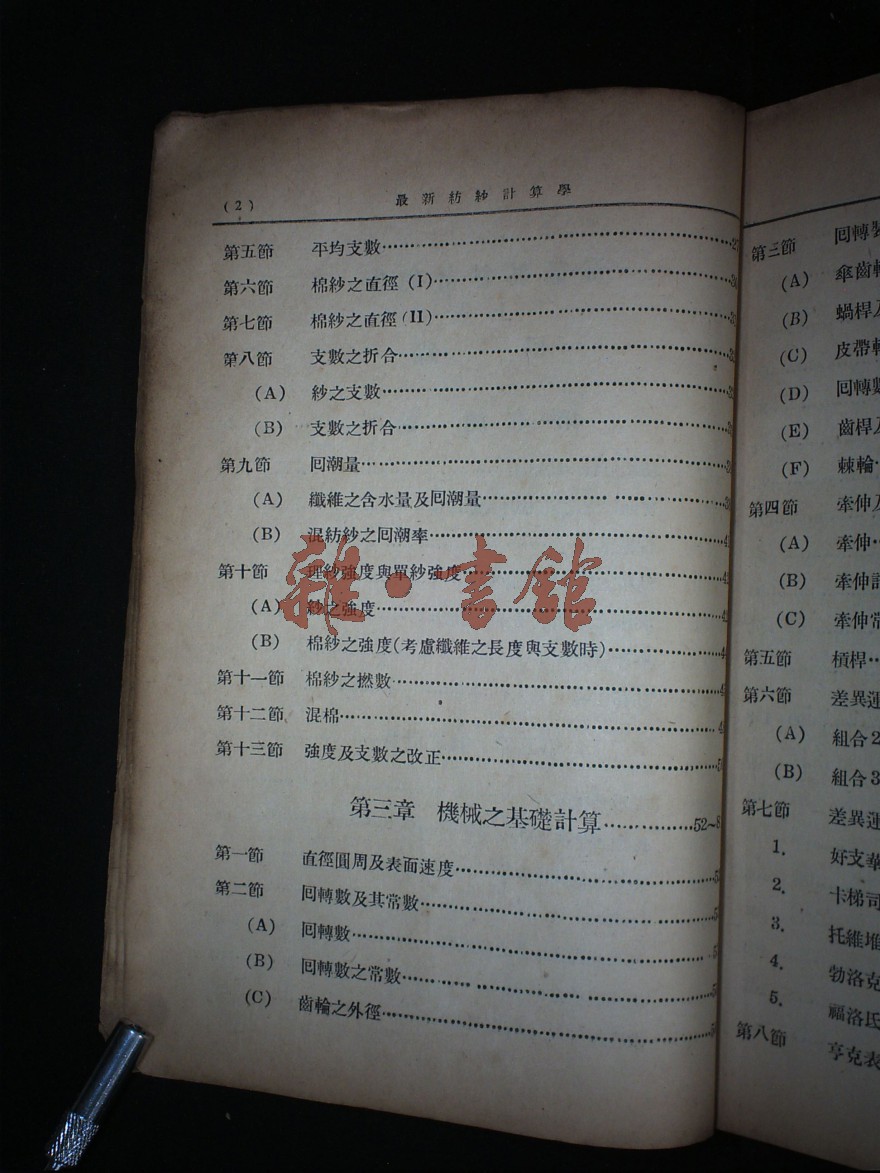 (2) 最新紡紗計算學
第五節 平均支數
第六節 棉紗之直徑 (I)
第七節 棉紗之直徑 (II)
第八節 支數之折合
(A) 紗之支數
(B) 支數之折合
第九節 囘潮量
(A) 纖維之含水量及囘潮量
(B) 混紡紗之囘潮率
第十節 理紗強度與單紗強度
(A) 紗之強度
(B) 棉紗之強度(考慮纖維之長度與支數時)
第十一節 棉紗之撚數
第十二節 混棉
第十三節 強度及支數之改正
第三章 機械之基礎計算 52~
第一節 直徑圓周及表面速度
第二節 囘轉數及其常數
(A) 囘轉數
(B) 囘轉數之常數
(C) 齒輪之外徑
雜·書館
第三節 囘轉
(A) 傘齒
(B) 蝸桿及
(C) 皮帶
(D) 囘轉數
(E) 齒桿及
(F) 棘輪
第四節 牽伸及
(A) 牽伸
(B) 牽伸
(C) 牽伸常
第五節 槓桿
第六節 差異運
(A) 組合2
(B) 組合3
第七節 差異運
1. 好支華
2. 卡梯司
3. 托維堆
4. 勃洛克
5. 福洛氏
第八節 亨克表